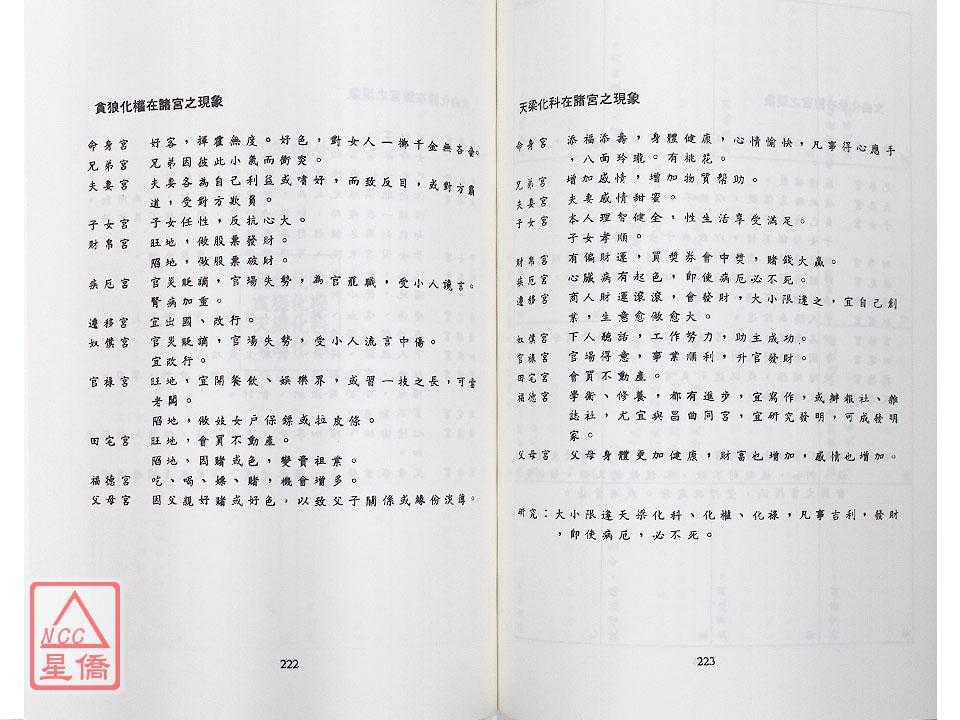 貪狼化權在諸宮之現象
命身宮 好客，揮霍無度。好色，對女人一擲千金無吝嗇。
兄弟宮 兄弟因彼此小氣而衝突。
夫妻宮 夫妻各為自己利益或嗜好，而致反目，或對方霸
道，受對方欺負。
子女宮 子女任性，反抗心大。
財帛宮 旺地，做股票發財。
陷地，做股票破財。
疾厄宮 官災貶謫，官場失勢，為官罷職，受小人讒言。
腎病加重。
遷移宮 宜出國、改行。
奴僕宮 官災貶謫，官場失勢，受小人流言中傷。
宜改行。
官祿宮 旺地，宜開餐飲、娛樂界，或習一技之長，可當
老闆。
陷地，做妓女戶保鏢或拉皮條。
田宅宮 旺地，會買不動產。
陷地，因賭或色，變賣祖業。
福德宮 吃、喝、嫖、賭，機會增多。
父母宮 因父親好賭或好色，以致父子關係或緣份淡薄。
222
天梁化科在諸宮之現象
命身宮 添福添壽，身體健康，心情愉快，凡事得心應手
，八面玲瓏。有桃花。
兄弟宮 增加感情，增加物質幫助。
夫妻宮 夫妻感情甜蜜。
子女宮 本人理智健全，性生活享受滿足。
子女孝順。
財帛宮 有偏財運，買獎券會中獎，賭錢大贏。
疾厄宮 心臟病有起色，即使病厄必不死。
遷移宮 商人財運滾滾，會發財，大小限逢之，宜自己創
業，生意愈做愈大。
奴僕宮 下人聽話，工作努力，助主成功。
官祿宮 官場得意，事業順利，升官發財。
田宅宮 會買不動產。
福德宮 學術、修養，都有進步，宜寫作，或辦報社、雜
誌社，尤宜與昌曲同宮，宜研究發明，可成發明
家。
父母宮 父母身體更加健康，財富也增加，感情也增加。
研究：大小限逢天梁化科、化權、化祿，凡事吉利，發財
，即使病厄，必不死。
223
NCC
星僑